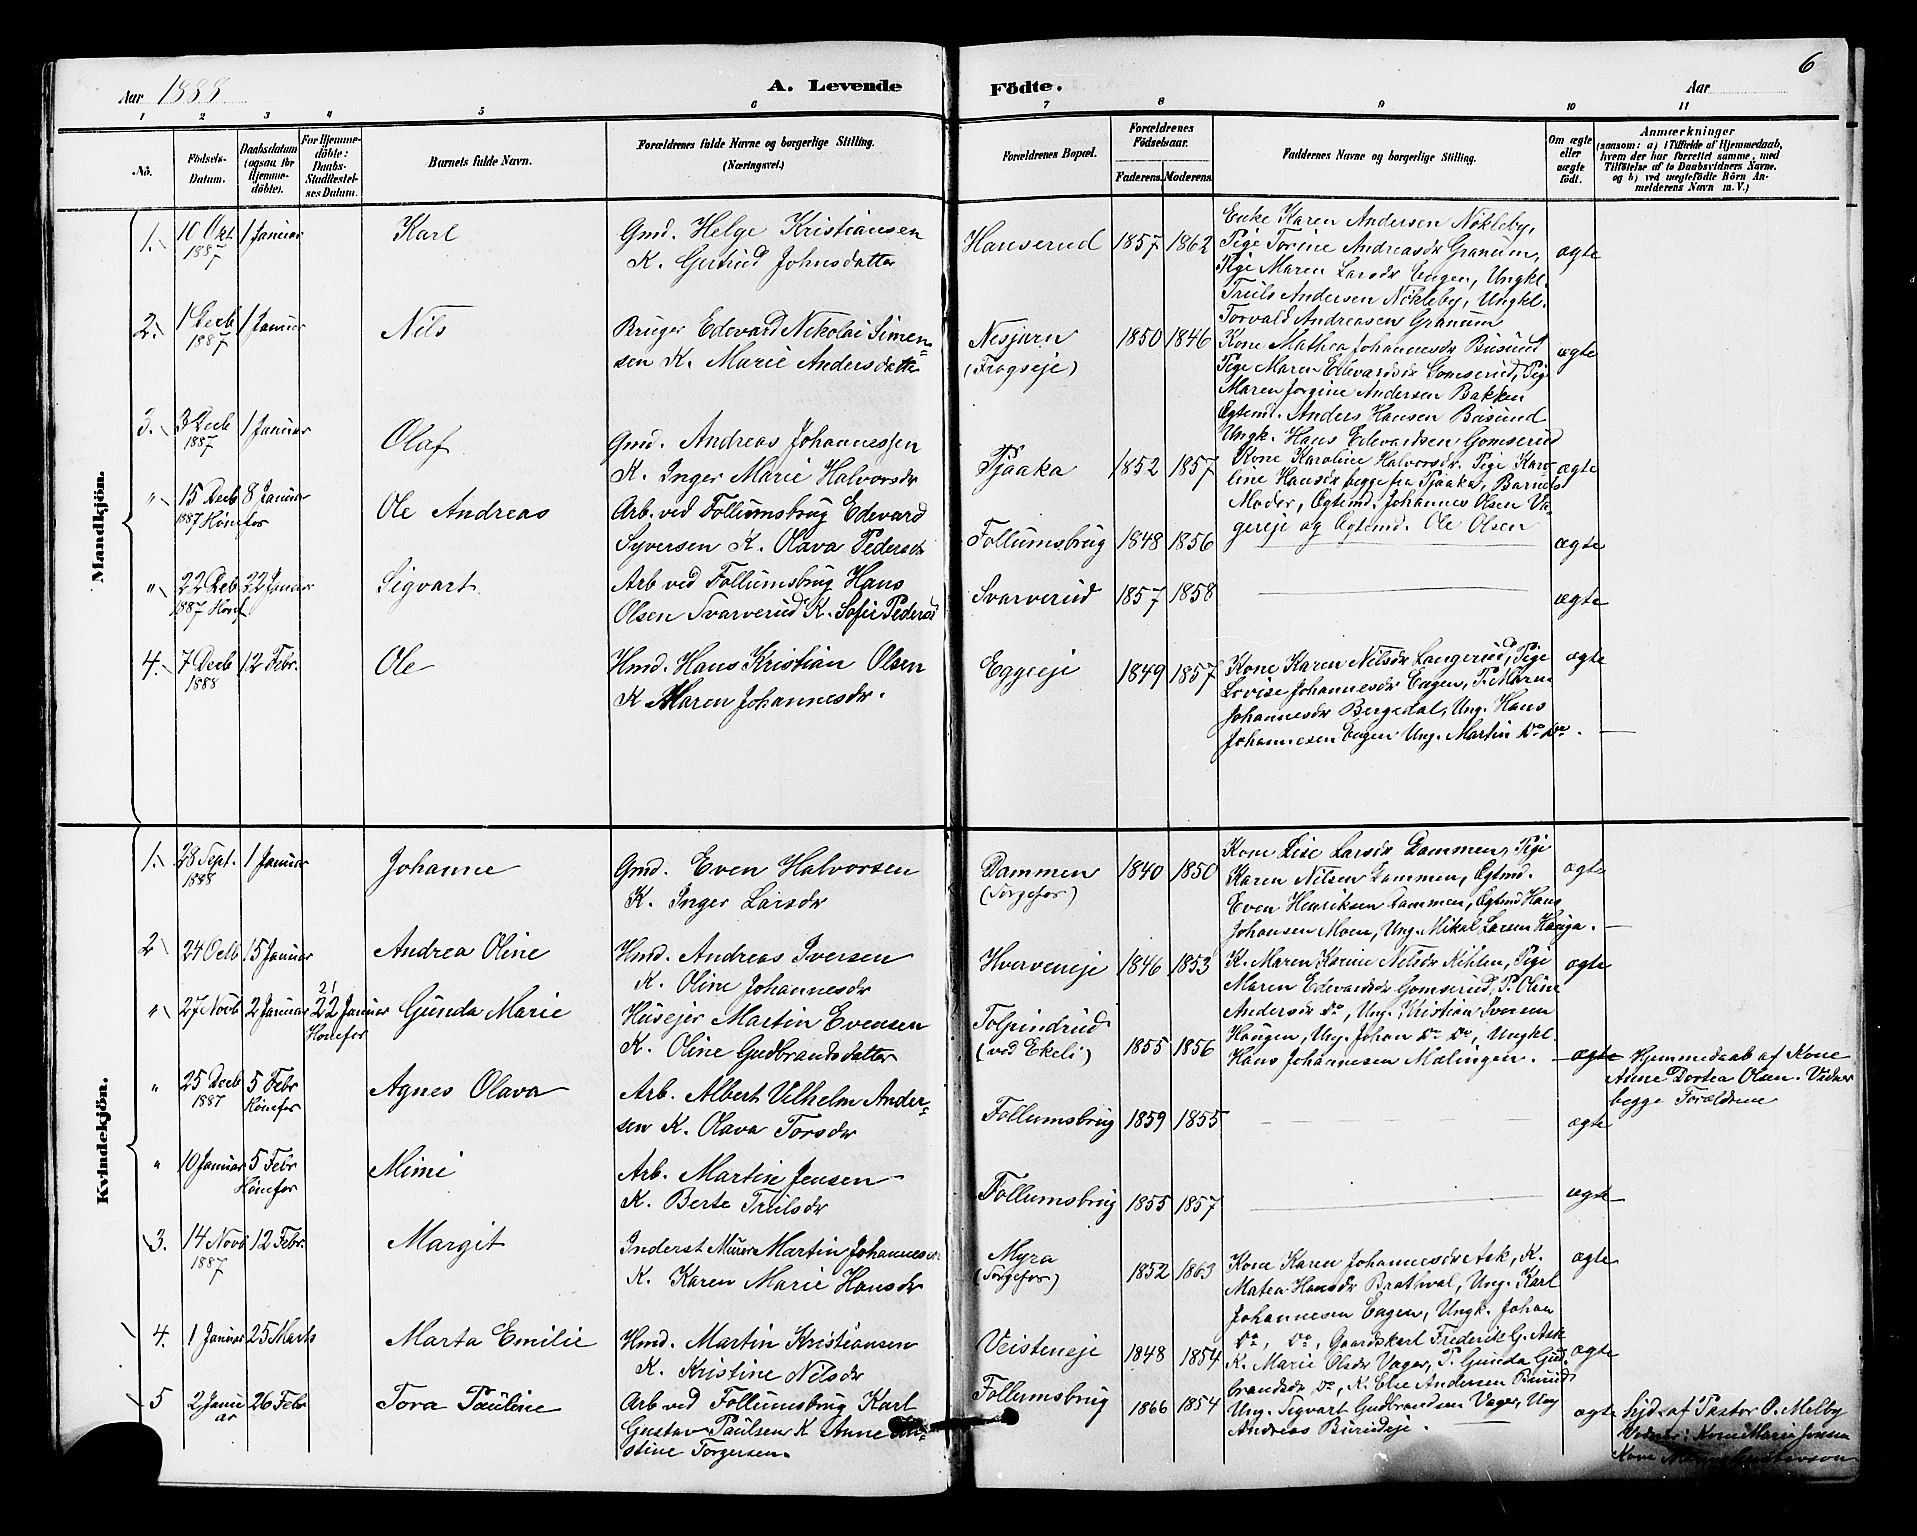 6
Aar 1888
A. Levende
Födte.
Aar
1 2 3 4 5 6 7 8 9 10 11
No.
Födsels-
Datum.
Daabsdatum
(ogsaa for
Hjemme-
döbte).
For Hjemme-
döbte:
Daabs-
Stadfæstel-
ses Datum.
Barnets fulde Navn.
Forældrenes fulde Navne og borgerlige Stilling.
(Næringsvei.)
Forældrenes Bopæl.
Forældrenes
Födselsaar.
Faderens. Moderens.
Faddernes Navne og borgerlige Stilling.
Om ægte
eller
uægte
födt.
Anmærkninger
(saasom: a) i Tilfælde af Hjemmedaab,
hvem der har forrettet samme, med
Tilföielse af to Daabsvidners Navne,
og b) ved uægtefödte Börn An-
melderens Navn m. V.)
Mandkjön.
1. 10 Okt 1887 1 Januar Karl
Gmd. Helge Kristiansen
K. Gertrud Johnsdatter
Hanserud 1857 1862
Enke Karen Andersen Nökleby,
Pige Torine Andreasdr Granum,
Pige Maren Larsdr Engen, Ungkl.
Truls Andersen Nökleby, Ungkl.
Torvald Andreasen Granum
ægte
2. 1 Decb 1887 1 Januar Nils
Bruger Edevard Nikolai Simen-
sen K. Marie Andersdatter
Nesjarn
(Frogseje)
1850 1846
Kone Mathea Johannesdr Busund
Pige Maren Edevardsdr Gomserud, Pige
Maren Jorgine Andersen Bakken
Ægtemd. Anders Hansen Busund
Ungk. Hans Edevardsen Gomserud
ægte
3. 3 Decb 1887 1 Januar Olaf
Gmd. Andreas Johannessen
K. Inger Marie Halvorsdr
Tjaaka 1852 1857
Kone Karoline Halvorsdr. Pige Karo-
line Hansdr begge fra Tjaaka, Barnets
Moder, Ægtemd. Johannes Olsen Va-
gereje og Ægtemd. Ole Olsen
ægte
" 15 Decb 1887 8 Januar Hönefos Ole Andreas
Arb. ved Follumsbrug Edevard
Syversen K. Olava Pedersdr
Follumsbrug 1848 1856 ægte
" 22 Decb 1887 22 Januar Hönef Sigvart
Arb ved Follumsbrug Hans
Olsen Svarverud K. Sofie Pedersd
Svarverud 1857 1858 ægte
4. 7 Decb 1888 12 Febr. Ole
Hmd. Hans Kristian Olsen
K Maren Johannesdr.
Eggeeje 1849 1857
Kone Karen Nilsdr Langerud, Pige
Lovise Johannesdr Engen, P. Maren
Johannesdr Bergedal, Ung. Hans
Johannesen Engen Ung. Martin Do Do.
ægte
Kvindekjön.
1. 28 Sept. 1888 1 Januar Johanne
Gmd. Even Halvorsen
K. Inger Larsdr
Dammen
(Torgefos)
1840 1850
Kone Lise Larsdr Dammen, Pige
Karen Nilsen Dammen, Ægtmd.
Even Henriksen Dammen, Ægtmd Hans
Johansen Moen, Ung. Mikal Larsen Hauga.
ægte
2 24 Octb 15 Januar Andrea Oline
Hmd. Andreas Iversen
K. Oline Johannesdr
Hverveneje 1846 1853
K. Maren Karine Nilsdr Kihlen, Pige
Maren Edevardsdr Gomserud, P. Oline
Andersdr Do, Ung. Kristian Iversen
Haugen, Ung. Johan Do Do, Ungkl.
Hans Johannesen Mælingen.
ægte
" 27 Novb 2 Januar 21 22 Januar Hönefos Gunda Marie
Husejer Martin Evensen
K. Oline Gudbrandsdatter
Tolpindrud
(ved Ekeli)
1855 1856 ægte
Hjemmedaab af Kone
Anne Dortea Olsen. Vidner
begge Forældrene
" 25 Decb 1887 5 Febr Hönefos Agnes Olava
Arb. Albert Vilhelm Ander-
sen K. Olava Torsdr
Follumsbrug 1859 1855 ægte
" 10 Januar 5 Febr Hönefos Mimi
Arb. Martin Jensen
K. Berte Trulsdr
Follumsbrug 1855 1857 ægte
3. 14 Novb 1887 12 Febr. Margit
Inderst Murer Martin Johannesen
K. Karen Marie Hansdr
Myra
(Torgefos)
1852 1863
Kone Karen Johannesdr Ask, K.
Matea Hansdr Brathval, Ung. Karl
Johannesen Engen, Ungk. Johan
Do, Do, Gaardskarl Frederik G. Ask
ægte
4. 1 Januar 25 Marts Marta Emilie
Hmd. Martin Kristiansen
K. Kristine Nilsdr
Veisteneje 1848 1854
K. Marie Olsdr Vager, P. Gunda Gud-
brandsdr Do, K. Else Andersen Busund
Ung. Sigvart Gudbrandsen Vager, Ung
Andreas Busudeje.
ægte
5 2 Janu ar 26 Febr Tora Pauline
Arb ved Follumsbrug Karl
Gustav Paulsen K Anne Kri-
stine Torgersen.
Follumsbrug 1866 1854 ægte
hjd. af Pastor O. Melby
Vidner: Kone Marie Jonsen
Kone